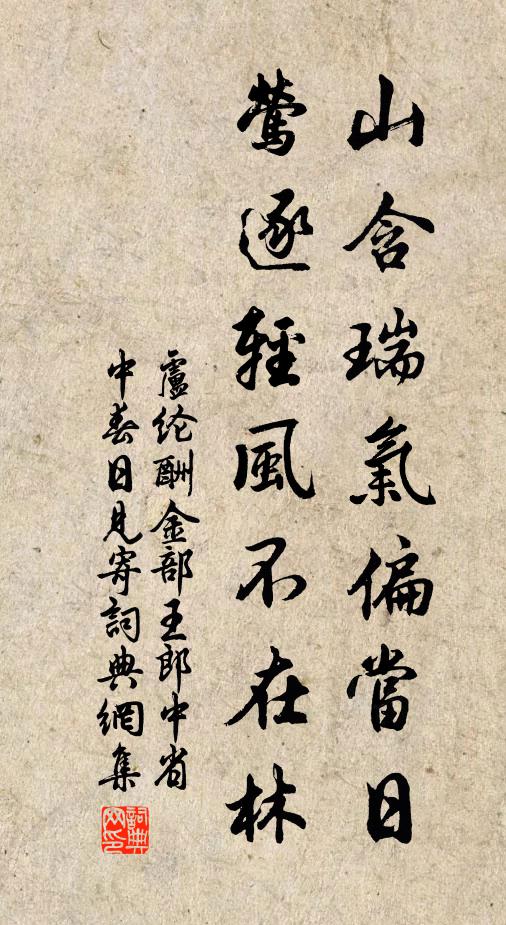 山含瑞氣偏當日
鶯逐輕風不在林
盧纶酬金部王郎中省
中春日見寄詞典網集
詞典
网印